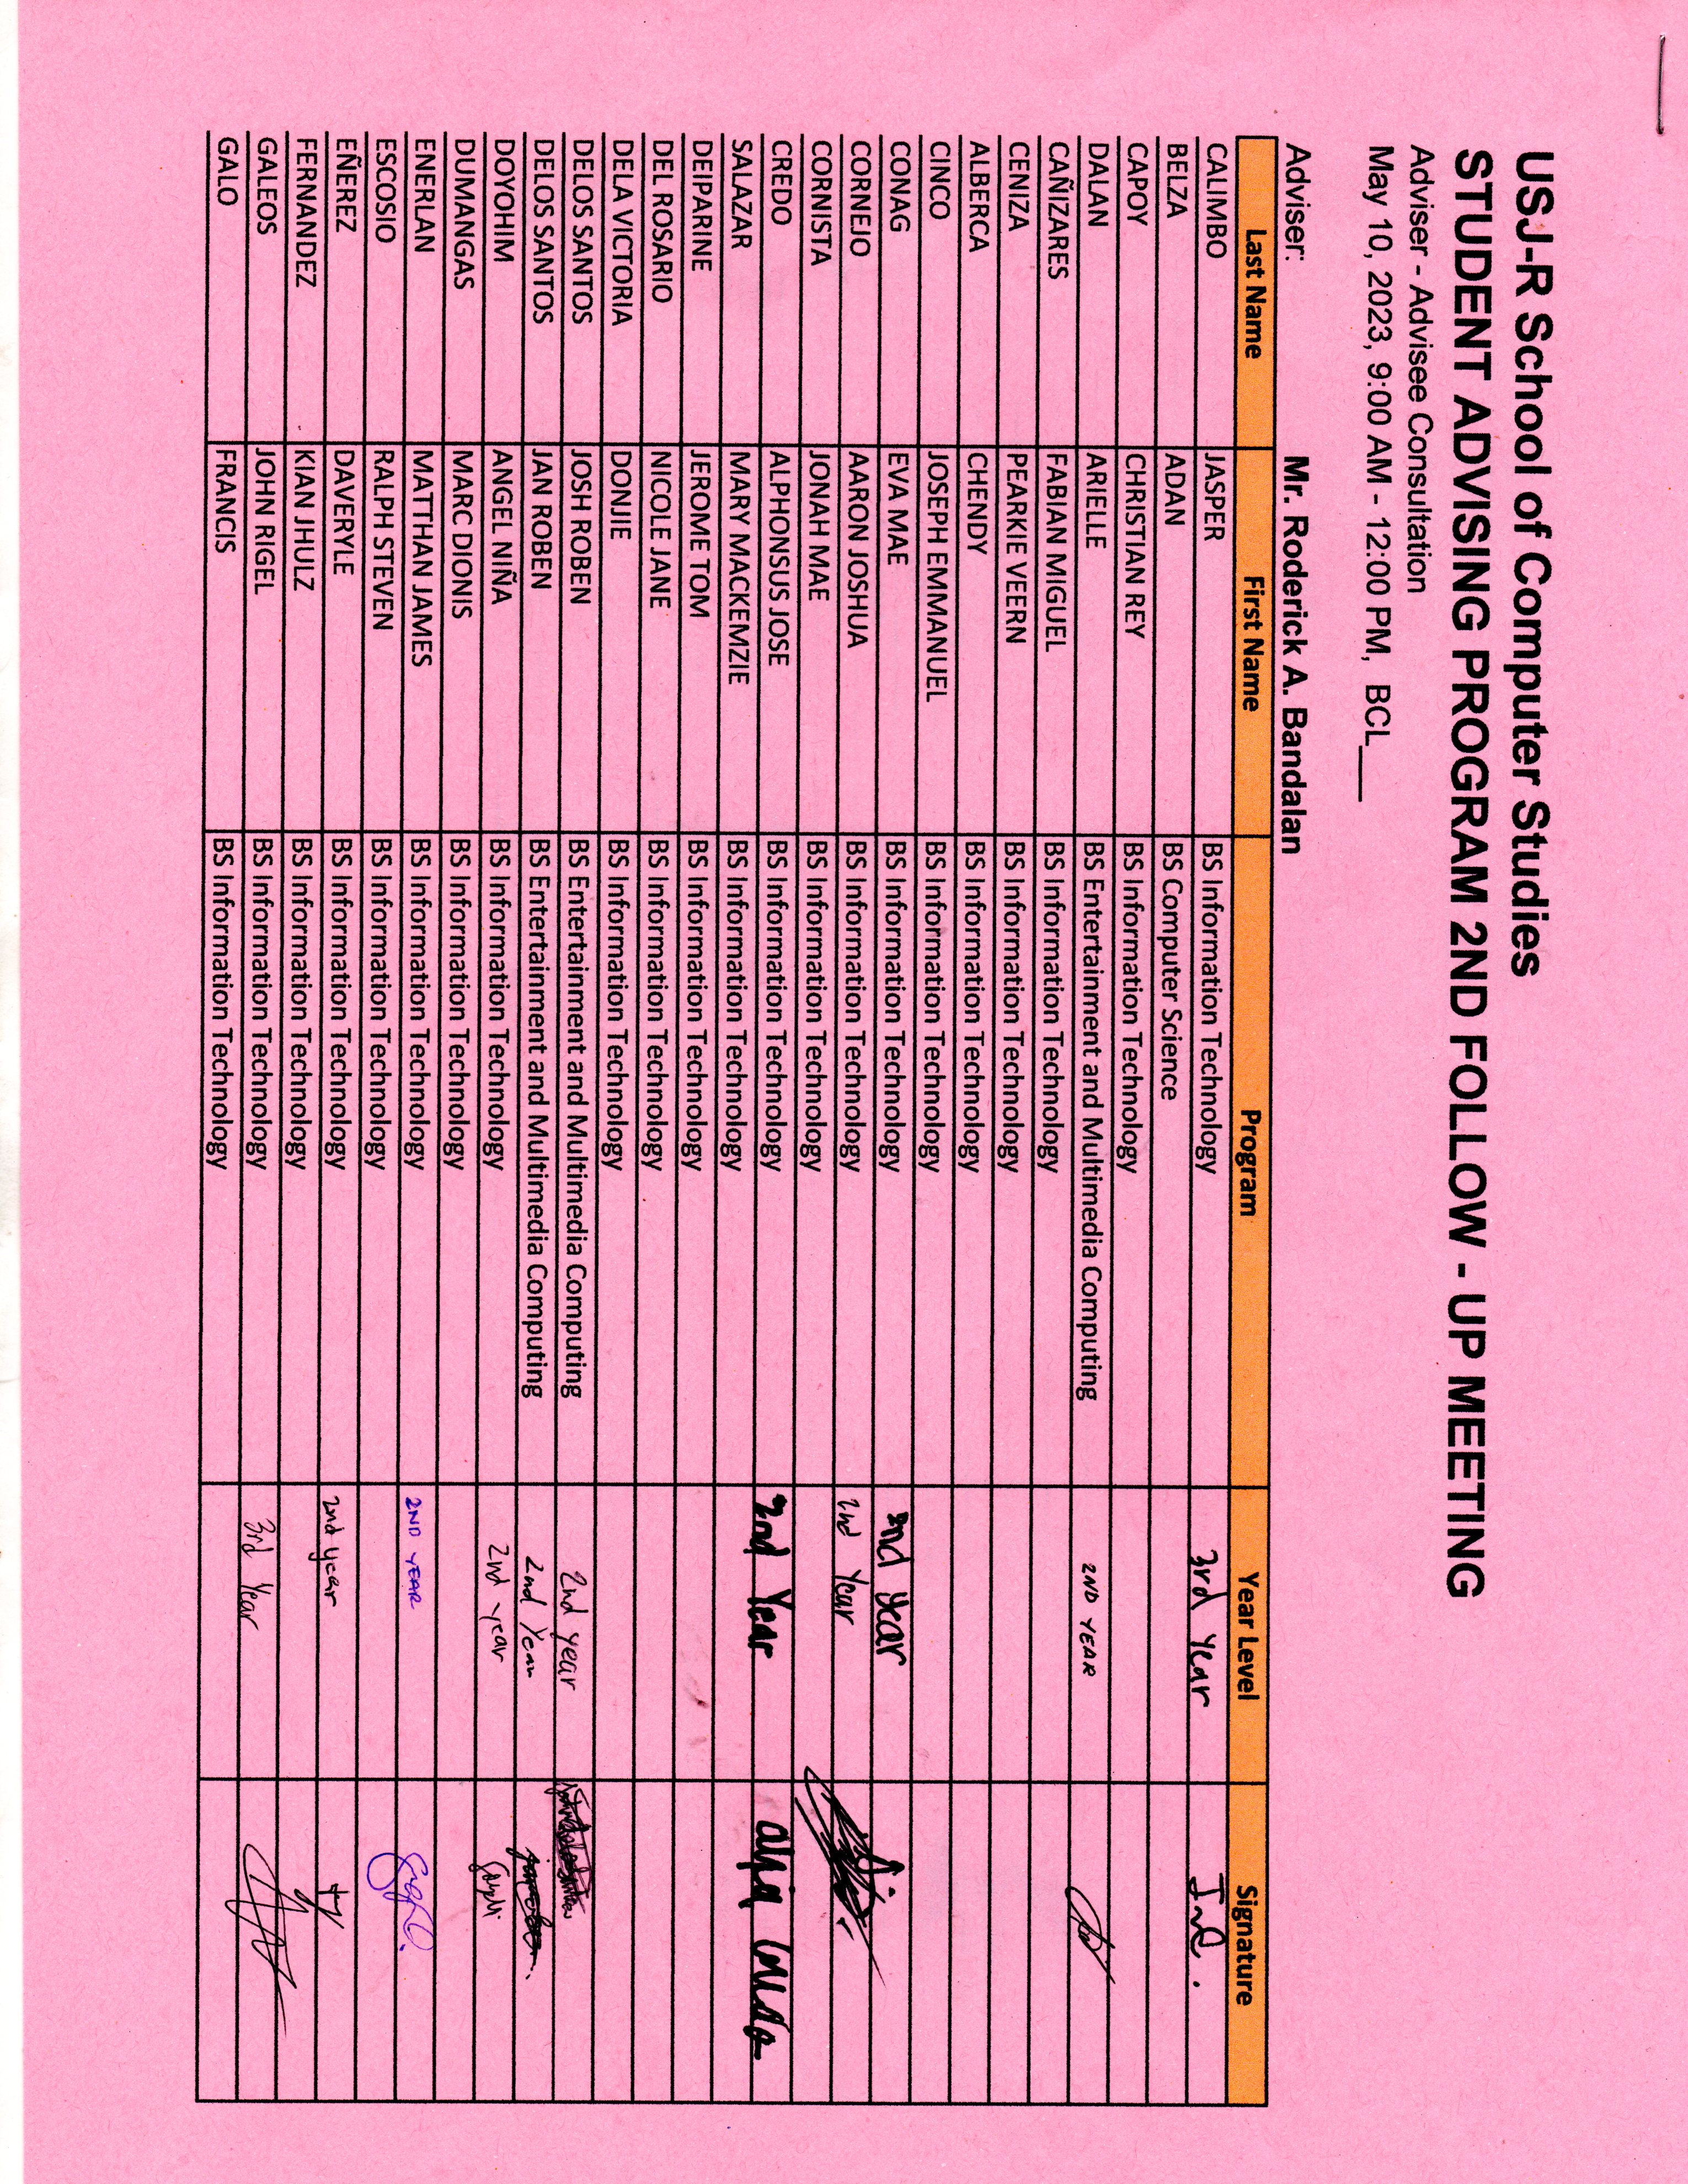 USJ-R School of Computer Studies
STUDENT ADVISING PROGRAM 2ND FOLLOW - UP MEETING
Adviser - Advisee Consultation
May 10, 2023, 9:00 AM - 12:00 PM, BCL___
Adviser: Mr. Roderick A. Bandalan
Last Name First Name Program Year Level Signature
CALIMBO JASPER BS Information Technology 3rd Year
BELZA ADAN BS Computer Science
CAPOY CHRISTIAN REY BS Information Technology
DALAN ARIELLE BS Entertainment and Multimedia Computing 2ND YEAR
CAÑIZARES FABIAN MIGUEL BS Information Technology
CENIZA PEARKIE VEERN BS Information Technology
ALBERCA CHENDY BS Information Technology
CINCO JOSEPH EMMANUEL BS Information Technology
CONAG EVA MAE BS Information Technology 2nd year
CORNEJO AARON JOSHUA BS Information Technology 2nd Year
CORNISTA JONAH MAE BS Information Technology
CREDO ALPHONSUS JOSE BS Information Technology 2nd Year
SALAZAR MARY MACKEMZIE BS Information Technology
DEIPARINE JEROME TOM BS Information Technology
DEL ROSARIO NICOLE JANE BS Information Technology
DELA VICTORIA DONJIE BS Information Technology
DELOS SANTOS JOSH ROBEN BS Entertainment and Multimedia Computing 2nd year
DELOS SANTOS JAN ROBEN BS Entertainment and Multimedia Computing 2nd Year
DOYOHIM ANGEL NIÑA BS Information Technology 2nd year
DUMANGAS MARC DIONIS BS Information Technology
ENERLAN MATTHAN JAMES BS Information Technology 2ND YEAR
ESCOSIO RALPH STEVEN BS Information Technology
EÑEREZ DAVERYLE BS Information Technology 2nd year
FERNANDEZ KIAN JHULZ BS Information Technology
GALEOS JOHN RIGEL BS Information Technology 3rd Year
GALO FRANCIS BS Information Technology